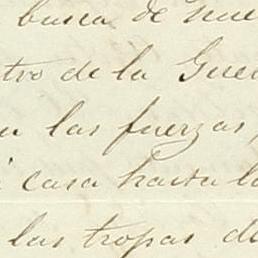 busca de nue
tro de la Gue
las fuerzas
casa hasta la
las tropas de